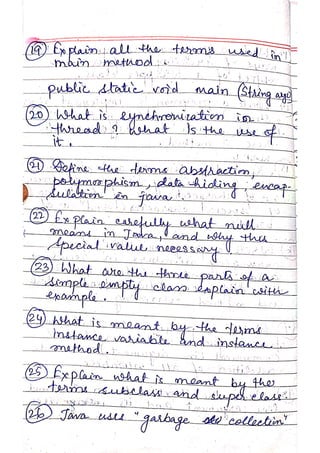 (19) Explain all the terms used in
main method.
public static void main (String args
(20) What is synchronization in
thread ? What Is the use of
it.
(21) Define the terms abstraction,
polymorphism, data hiding, encap-
sulation in java.
(22) Explain carefully what null
means in Java, and why this
special value necessary
(23) What are the three parts of a
simple empty class explain with
example.
(24) What is meant by the terms
instance variable and instance
method.
(25) Explain what is meant by the
terms subclass and super class.
(26) Java uses "garbage collection"